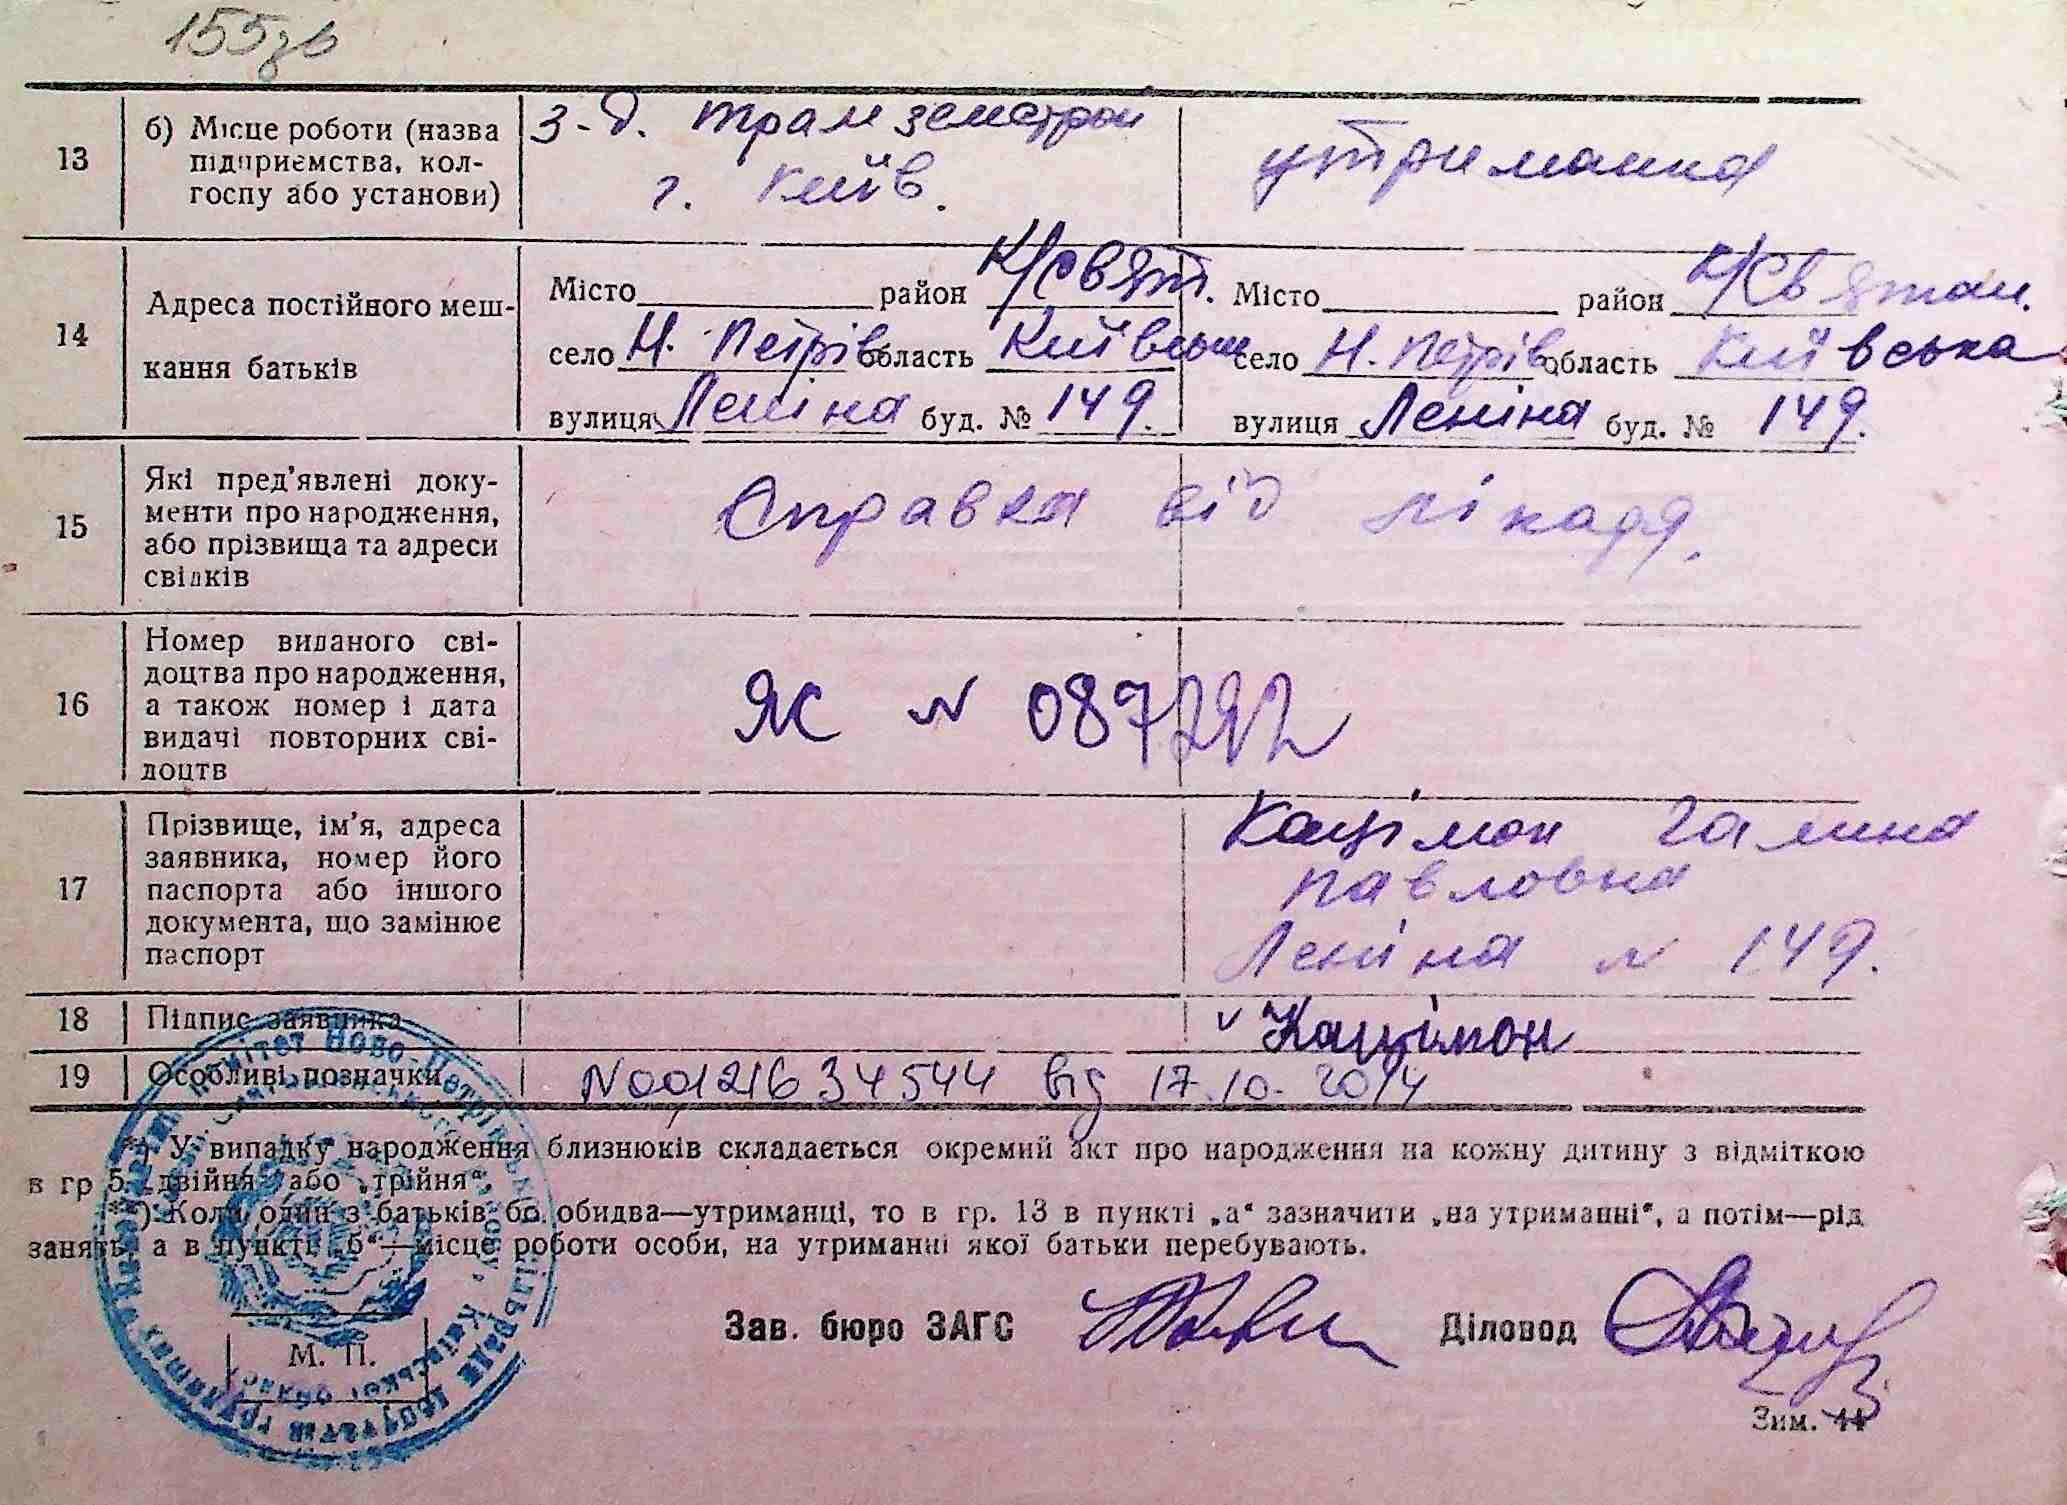 155зв
13
б) Місце роботи (назва
підприємства, кол-
госпу або установи)
з-д. Трамземстрой
г. Київ.
утриманка
14
Адреса постійного меш-
кання батьків
Місто район К/Свят.
село Н. Петрів область Київська
вулиця Леніна буд. № 149.
Місто район К/Святош.
село Н. Петрів область Київська
вулиця Леніна буд. № 149.
15
Які пред'явлені доку-
менти про народження,
або прізвища та адреси
свідків
Справка від лікаря.
16
Номер виданого сві-
доцтва про народження,
а також номер і дата
видачі повторних сві-
доцтв
ЯС № 087292
17
Прізвище, ім'я, адреса
заявника, номер його
паспорта або іншого
документа, що замінює
паспорт
Кацімон Галина
Павловна
Леніна № 149.
18
Підпис заявника
v Кацімон
19
Особливі позначки
N00121634544 від 17.10.2014
*) У випадку народження близнюків складається окремий акт про народження на кожну дитину з відміткою
в гр 5 „двійня“ або „трійня“.
**) Коли один з батьків бо обидва—утриманці, то в гр. 13 в пункті „а“ зазначити „на утриманні“, а потім—рід
занять, а в пункті „б“—місце роботи особи, на утриманні якої батьки перебувають.
Зав. бюро ЗАГС
Діловод
М. П.
Зим. 44